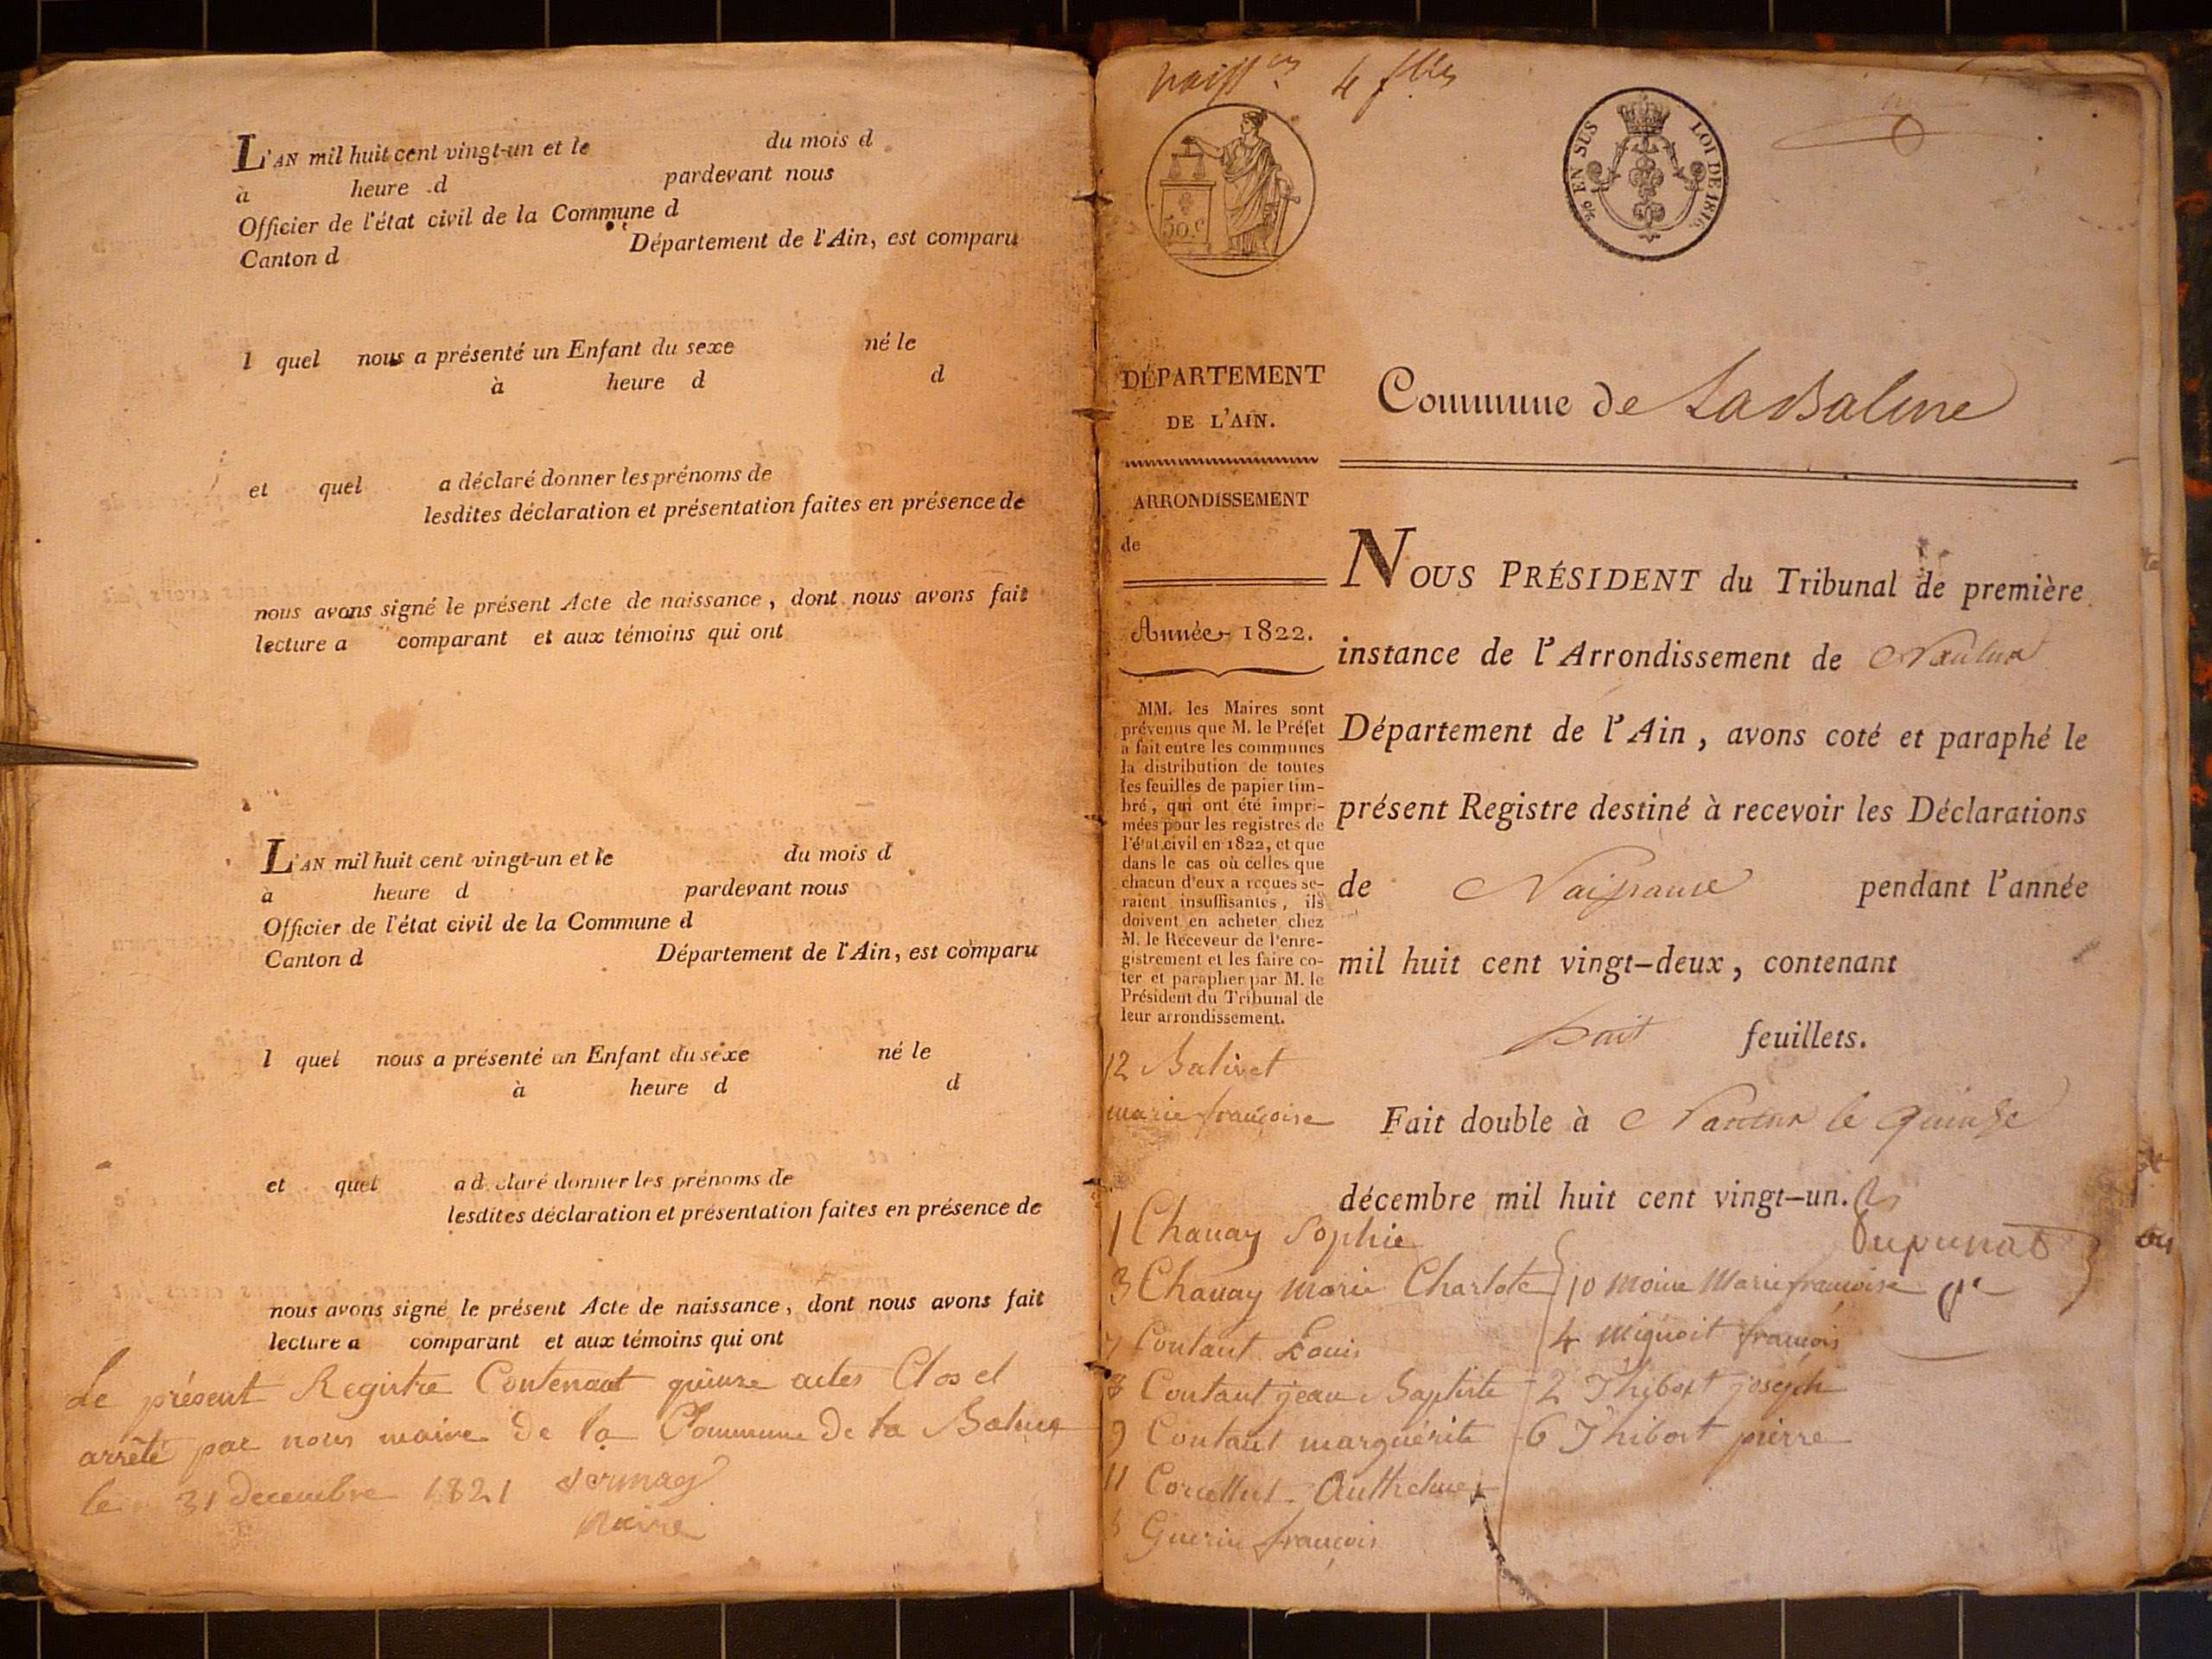 L'AN mil huit cent vingt-un et le du mois d
à heure d pardevant nous
Officier de l'état civil de la Commune d
Canton d Département de l'Ain, est comparu
l quel nous a présenté un Enfant du sexe né le
à heure d d
et quel a déclaré donner les prénoms de
lesdites déclaration et présentation faites en présence de
nous avons signé le présent Acte de naissance, dont nous avons fait
lecture a comparant et aux témoins qui ont
L'AN mil huit cent vingt-un et le du mois d
à heure d pardevant nous
Officier de l'état civil de la Commune d
Canton d Département de l'Ain, est comparu
l quel nous a présenté un Enfant du sexe né le
à heure d d
et quel a déclaré donner les prénoms de
lesdites déclaration et présentation faites en présence de
nous avons signé le présent Acte de naissance, dont nous avons fait
lecture a comparant et aux témoins qui ont
Le présent Registre Contenant quinze actes Clos et
arrêté par nous maire de la Commune de la Balme
le 31 decembre 1821
Maire
4 flles
50 c
EN SUS LOI DE 1816
DÉPARTEMENT
DE L'AIN.
ARRONDISSEMENT
de
Année 1822.
MM. les Maires sont
prévenus que M. le Préfet
a fait entre les communes
la distribution de toutes
les feuilles de papier tim-
bré, qui ont été impri-
mées pour les registres de
l'état civil en 1822, et que
dans le cas où celles que
chacun d'eux a reçues se-
raient insuffisantes, ils
doivent en acheter chez
M. le Receveur de l'enre-
gistrement et les faire co-
ter et parapher par M. le
Président du Tribunal de
leur arrondissement.
Commune de La Balme
NOUS PRÉSIDENT du Tribunal de première
instance de l'Arrondissement de Nantua
Département de l'Ain, avons coté et paraphé le
présent Registre destiné à recevoir les Déclarations
de Naissance pendant l'année
mil huit cent vingt-deux, contenant
huit feuillets.
Fait double à Nantua le quinze
décembre mil huit cent vingt-un.
12 Balivet
marie françoise
1 Chanay Sophie
3 Chanay marie Charlote
7 Coutant Louis
8 Coutant jean Baptiste
9 Coutant marguérite
11 Corcellut Anthelme
5 Guerin françois
10 Moine Marie françoise
4 Mignoit françois
2 Thibost joseph
6 Thibost pierre